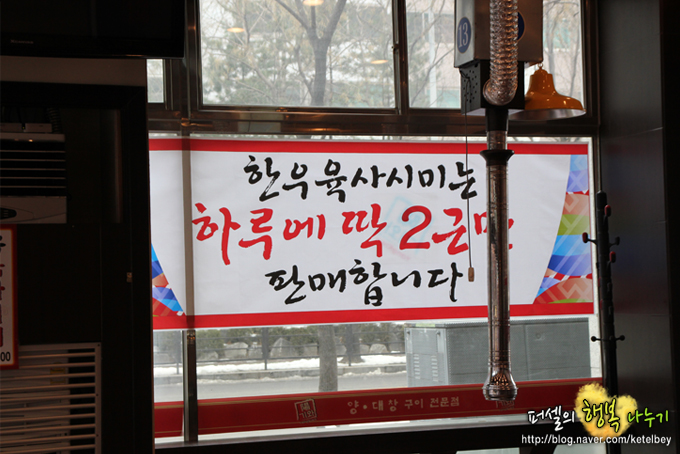 13
한우육사시미는
하루에 딱 2근만
판매합니다
00
양·대창 구이 전문점
퍼셀의 행복 나누기
http://blog.naver.com/ketelbey